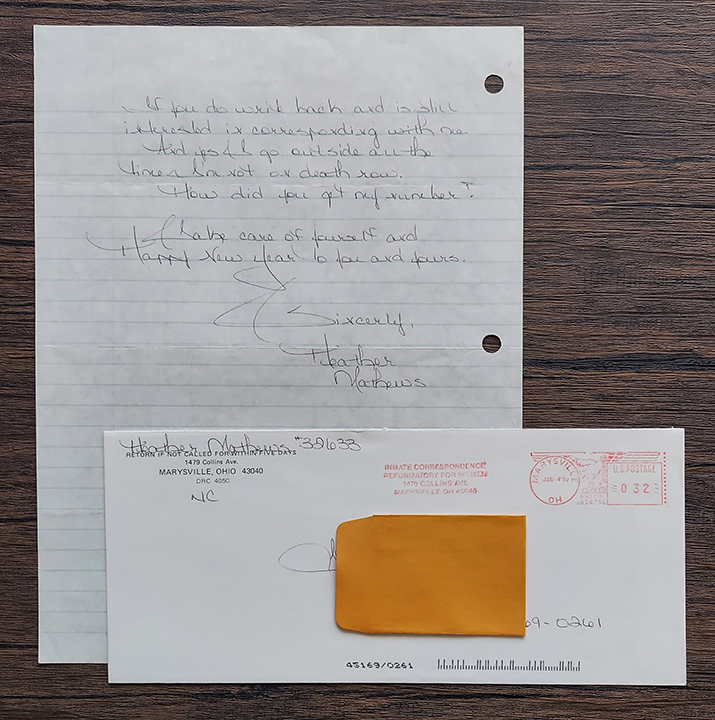 If you do write back and is still
interested in corresponding with me
And yes I go outside all the
time. I'm not on death row.
How did you get my number?
Take care of yourself and
Happy New Year to you and yours.
Sincerly,
Heather
Mathews
Heather Mathews #32633
RETURN IF NOT CALLED FOR WITHIN FIVE DAYS
1479 Collins Ave.
MARYSVILLE, OHIO 43040
DRC 4050
NC
INMATE CORRESPONDENCE
REFORMATORY FOR WOMEN
1479 COLLINS AVE
MARYSVILLE OH 43040
MARYSVILLE
OH
U.S. POSTAGE
0 32
69-0261
45169/0261